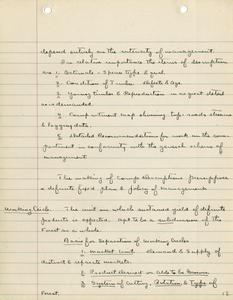 depend entirely on the intensity of management.
In relative importance the items of description
are 1. Estimate - Species Type & yield.
2. Condition of Timber. Defects & Age.
3. Young timber & Reproduction in as great detail
as demanded.
4. Compartment map showing type roads streams
& logging data.
5. Detailed Recommendations for work on the com-
partment in conformity with the general scheme of
management
The making of Comp. Descriptions presuppose
a definite fixed plan & policy of Management.
Working Circle. The unit on which sustained yield of definite
products is expected. Apt to be a subdivision of the
Forest as a whole.
Basis for Separation of Working Circles
1. Market Unit. Demand & Supply of
distinct & separate markets.
2. Product desired or
3. System of Cutting, Rotation & Type of
Forest.